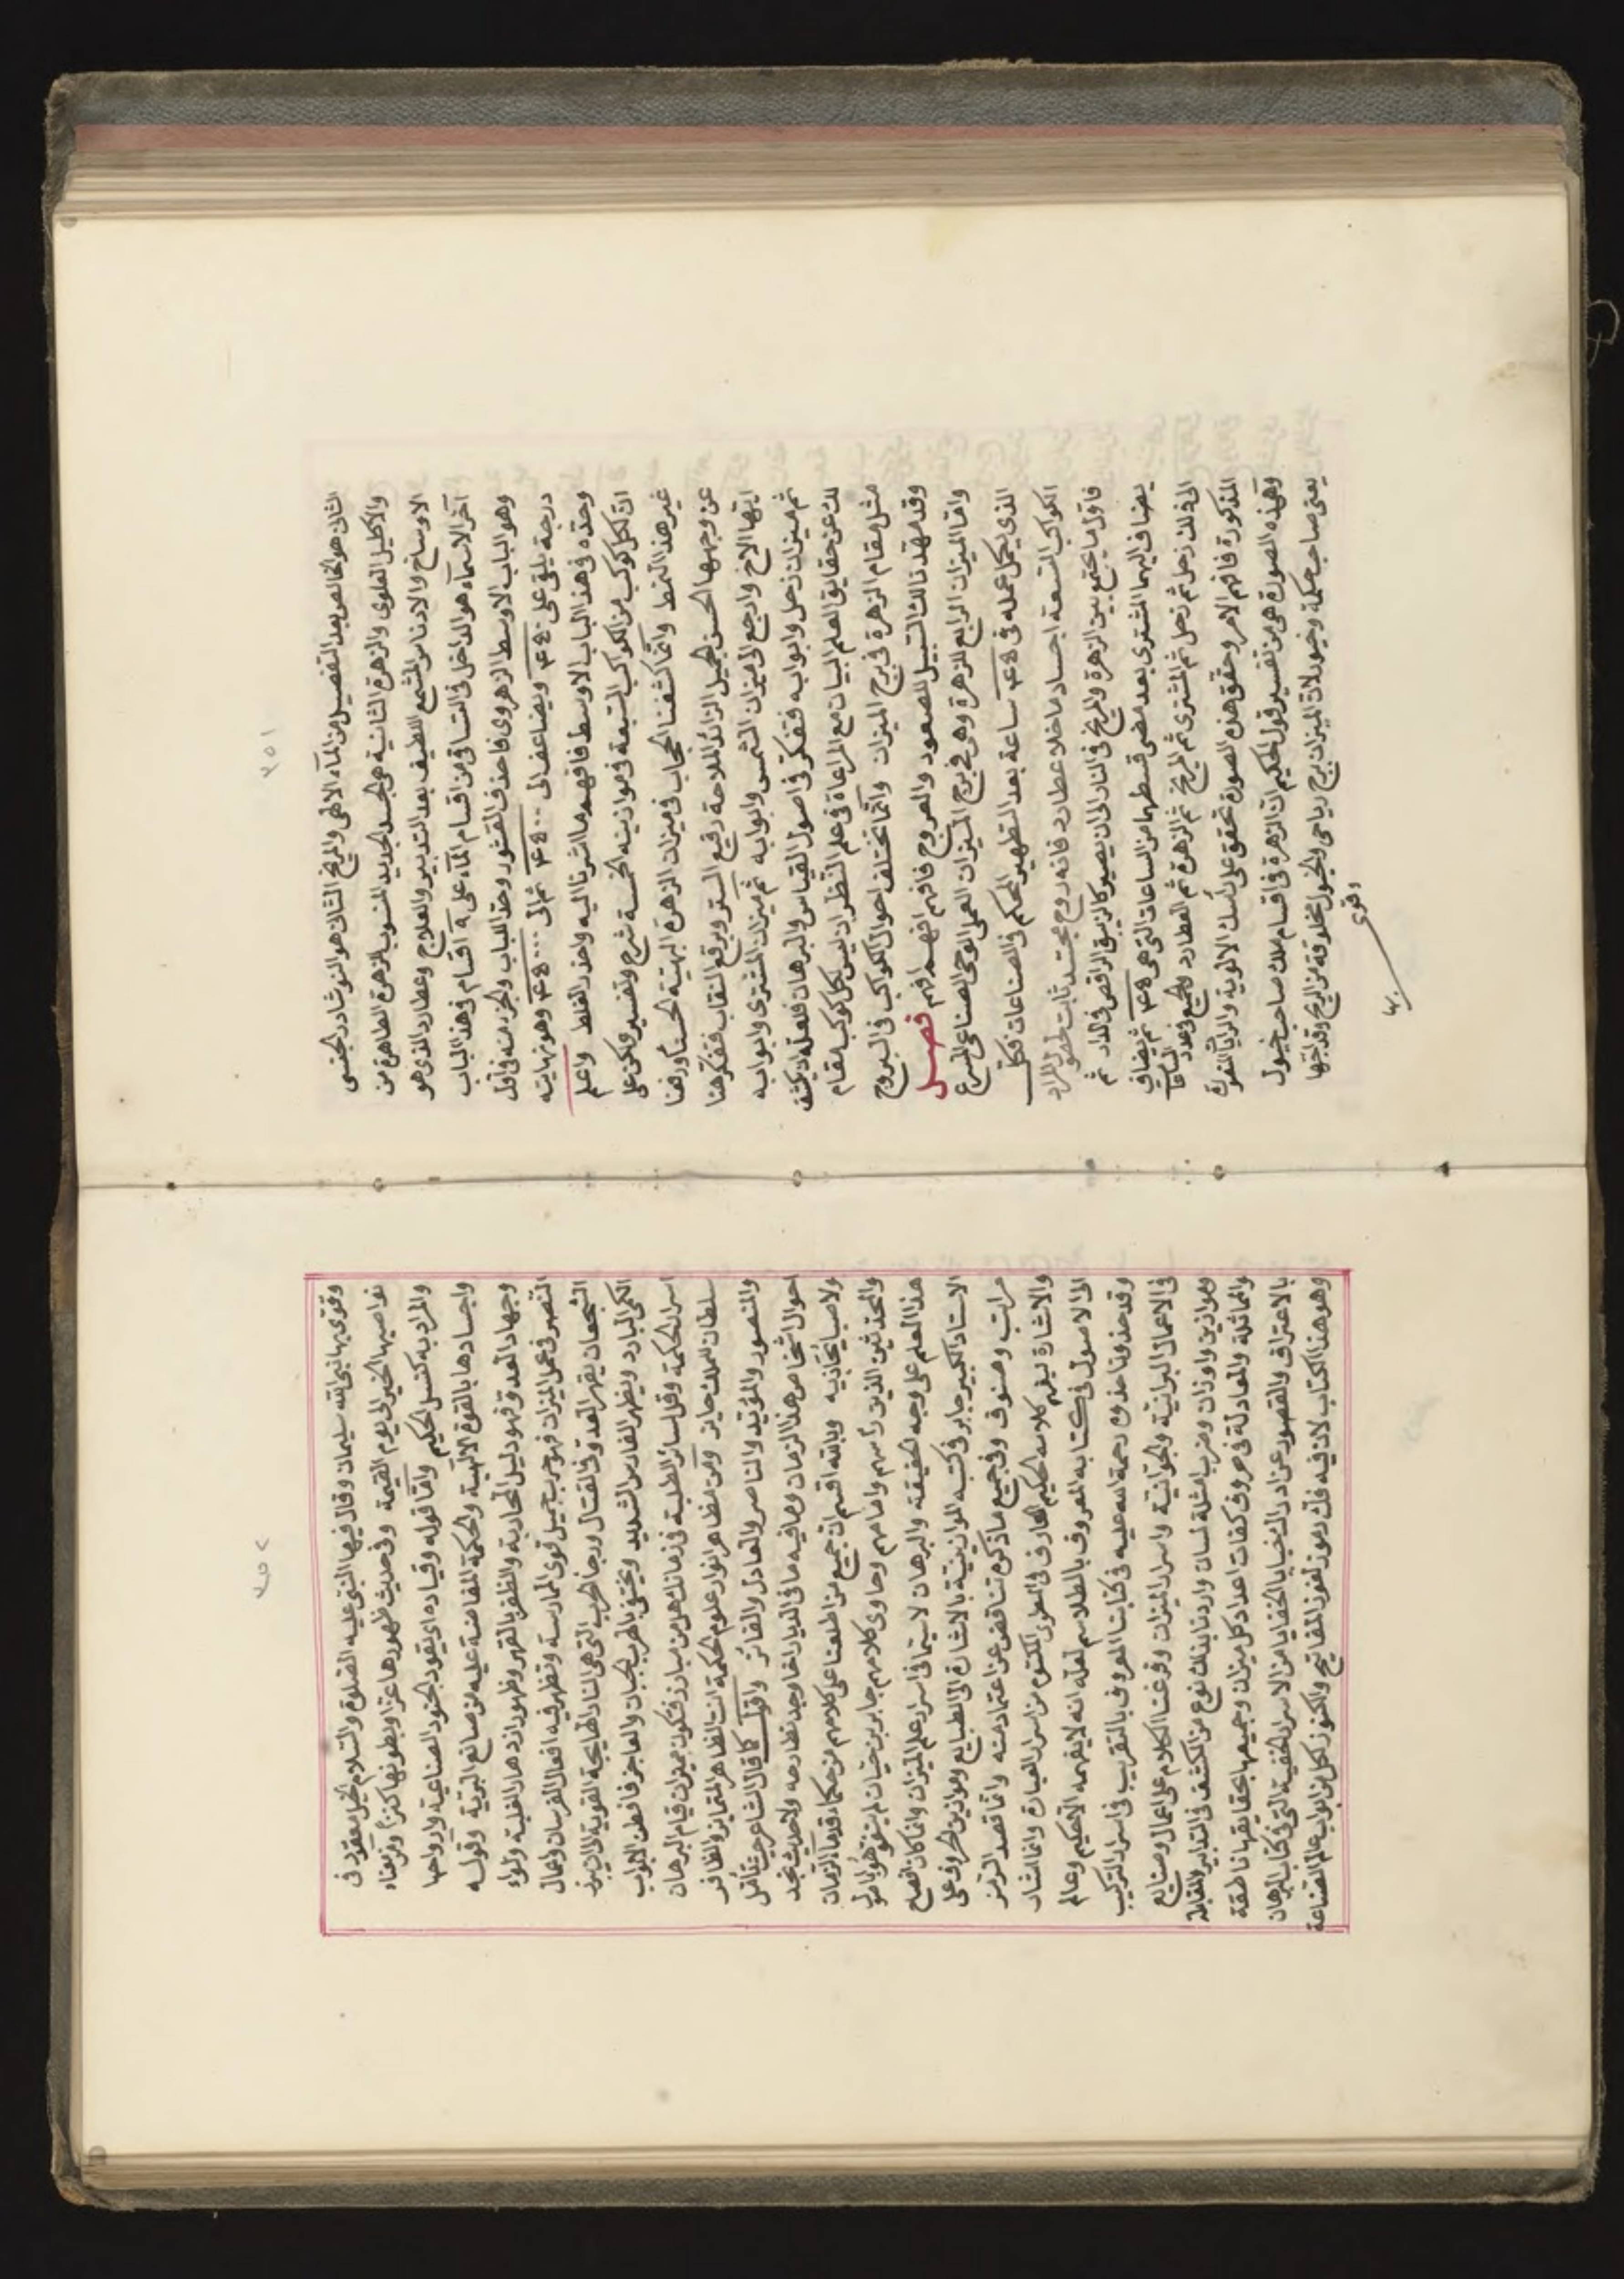 ٣٥١
الثانى هو الخالص بعد التفصيل من الماء الالهى والمريخ الثانى هو النوشادر الجنسى
والاكليل العلوى والزهرة الثانية هى الجسد الجديد المنسوب بالزهرة الطاهرة من
الاوساخ والادناس والشمع اللطيف بعد التدبير والعلاج وعطارد الذى هو
آخر الاسماء هو الداخل فى التساقى من اقسام الماء على ٩ اقسام فى هذا الباب
وهو الباب الاوسط الزهروى فاحذف القشور وخذ اللباب والجزء منه فى اقل
درجة يلقى على ويضاعف الى ثم الى وهو نهايته
وحدّه فى هذا الباب الاوسط فافهم ما اشرنا اليه واحذر الغلط واعلم
ان لكل كوكب من الكواكب السبعة فى موازينه الخمسة شرح وتفسير ولكن على
غير هذا النمط وانما كشفنا الحجاب فى ميزان الزهرة البهية الحسناء ورفعنا
عن وجهها الحسن الجميل الزائد الملاحة رفيع الستر وبرقع النقاب ففكر هنا
ايها الاخ وارجع الى ميزان الشمس وابوابه ثم ميزان المشترى وابوابه
ثم ميزان زحل وابوابه ففكر فى اصول القياس والبرهان فلعله ان يكشف
لك عن حقايق العلم البيان مع المراعاة فى علم النظر ان ليس لكل كوكب مقام
مثل مقام الزهرة فى برج الميزان وانما تختلف احوال الكواكب فى البروج
وقد مهدنا لك السبيل للصعود والعروج فافهم افهم افهم فصل
واما الميزان الرابع للزهرة وهى فى برج الميزان العملى الوحى الصناعى المسرع
الذى يكمل عمله فى ساعة بعد التطهير المحكم فى الصناعات فكل
الكواكب التسعة اجساد ما خلا عطارد فانه روح مجسد ثابت
فاول ما يجتمع بين الزهرة والمريخ فى النار الى ان يصير كالزيبق الراقص ثم
يضاف اليهما المشترى بعد مضى قسطهما من الساعات التى هى ثم يضاف
الى ذلك زحل ثم زحل ثم المشترى ثم المريخ ثم الزهرة ثم العطارد والجميع
المذكورة فافهم الامر وحقق هذه الصورة تخفق على راسك الالوية والرايات
وهذه الصورة هى من تفسير قول الحكيم ان الزهرة فى اقسام ملك صاحب خيول
يعنى صاحب حكمة وخيول لان الميزان برج رياحى والخيول مخلوقة من الريح وقد اجتمعا
وقوى
٣٥٢
وقوى بها نبى الله سليمان وقال فيها النبى عليه الصلوة والسلام الخيل معقود فى
نواصيها الخير الى يوم القيمة وفى حديث ظهورها عزا وبطونها كنزا ومن معناه
والمراد به كتسل الحكيم واما قوله وقياده اى يقود الجنود الصناعية وارواحها
واجسادها بالقوة الالهية والحكمة المفاضة عليه من صانع البرية وقوله
وجهاد العدو فهو دليل المحاربة والظفر بالقهر وظهور ازدهار الغلبة ولواء
النصر فى عمل الميزان فهو حرب جميل قوى الممارسة وتظهر فيه افعال الفرسان واعمال
الشجعان بقهر العدو فى القتال ورجا الحرب التى هى النار الهايجة القوية الى ان يبرز
الكمى المبارز ويظهر الفارس الشديد ويختفى بالحرب الجبان والعاجز فافطن لابواب
اسرار الحكمة وقل لسائر الطلبة فى زمانك هل من مبارز فتكون بميزان قيام البرهان
سلطان للملك حايز ومن مظاهر انوار علوم الحكمة انت الظاهر المتمايز والظافر
والمنصور والمؤيد والناصر والعادل والفائز واقول كما قال الشاعر حيث تأمل
احوال اشخاص هذا الزمان وما فيه ما فى الديار اخا وجد نطارحه ولا حديث نجد
ولا صب نجاذبه وبالله اقسم ان جميع من اطلعنا على كلامهم من حكماء قدماء الزمان
والمحدثين الذين راسهم وامامهم وحاوى كلامهم جابر بن حيان لم يتفوهوا باصول
هذا العلم على وجه الحقيقة والبرهان لا سيما فى اسرار علم الميزان وانما كان افصح
الاستاد الكبير جابر فى كتبه الموازينية بالاشارة الى الطبايع وموازين الحروف على
مراتب وصنوف وفى جميع ما ذكره تناقض عن اعتماد منه واما قصد الرمز
والاشارة ليفهم كلامه الحكيم العارف فى المطوى المكتوم من اسرار العبارة وانما اشار
الى الاصول فى كتابه المعروف بالطلاسم لعلمه انه لا يفهمه الا حكيم وعالم
وقد حذونا حذوه رحمة الله عليه فى كتابنا المعروف بالتقريب فى اسرار التركيب
فى الاعمال البرانية والجوانية واسرار الميزان وفرغنا الكلام على اعمال وصنايع
وموازين واوزان وضرب امثلة لسان واردنا بذلك نوع من الكشف فى التدابير والمقابلة
والمماثلة والمعادلة فى حروف كفات اعداد كل ميزان وجميعها بحقايقها ناطقة
بالاعتراف والقصور عن ادراك خبايا الخفايا من الاسرار الخفية التى فى كتاب البرهان
وهو هذا الكتاب لان فيه فك رموز لغوز المفاتيح والكنوز لكل من ابواب عالم الصناعة